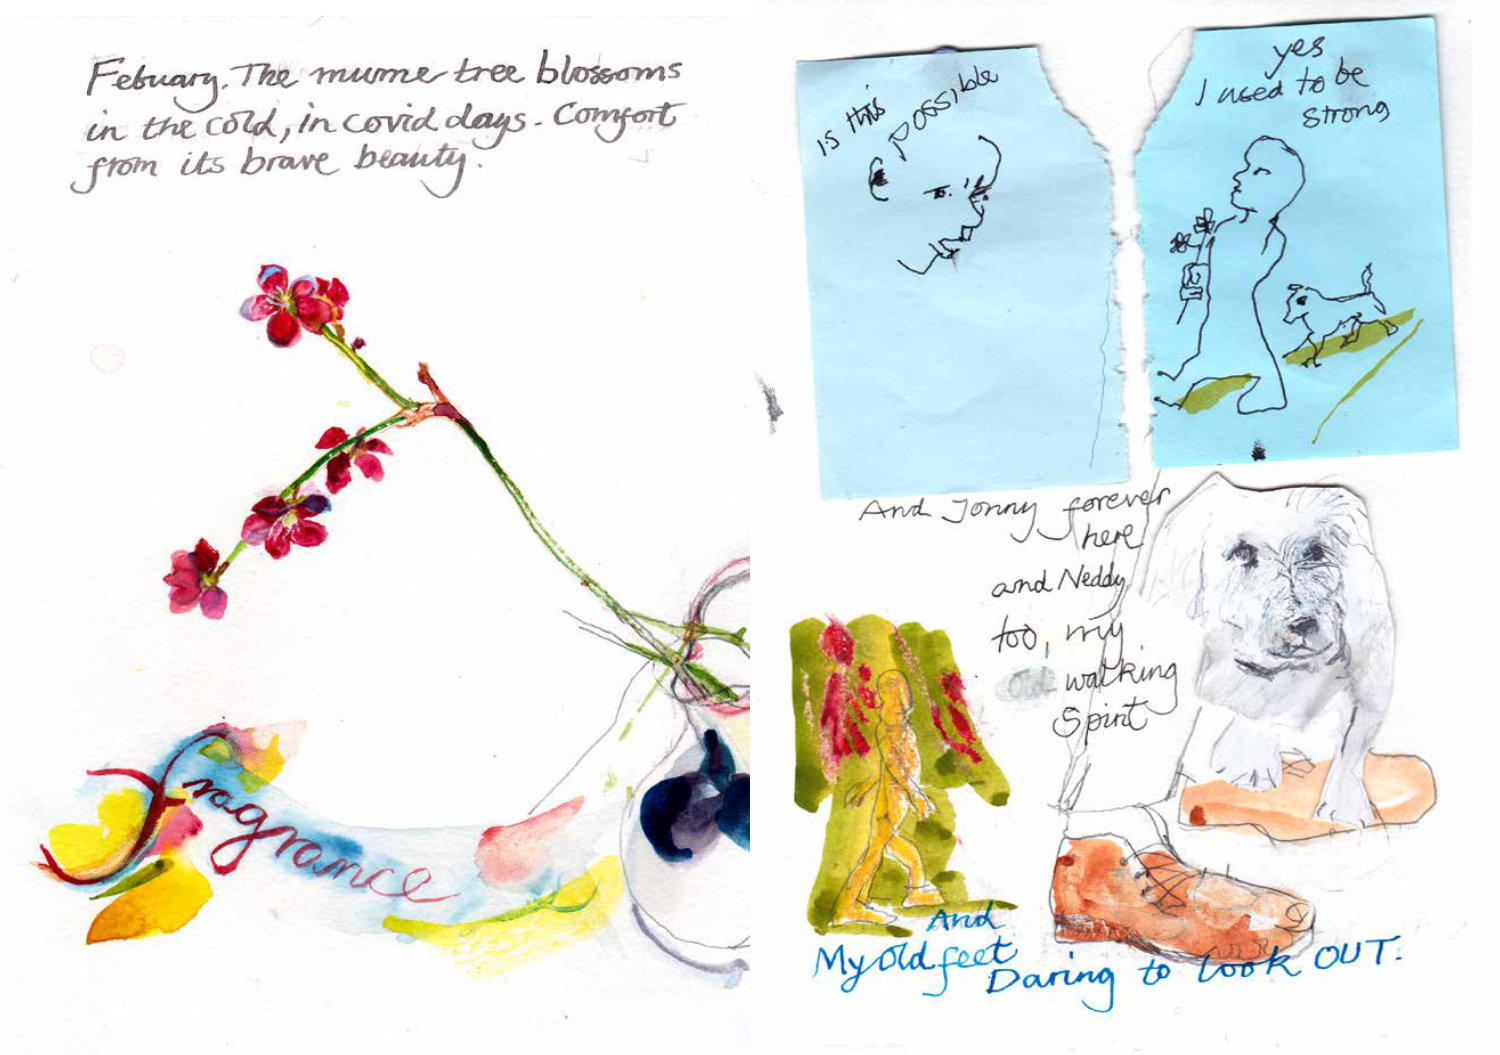 Febuary. The mume tree blossoms
in the cold, in covid days. Comfort
from its brave beauty.
fragrance
is this
possible
yes
I used to be
strong
And Jonny forever
here
and Neddy
too, my
old walking
Spirit
And
My old feet
Daring to look OUT.